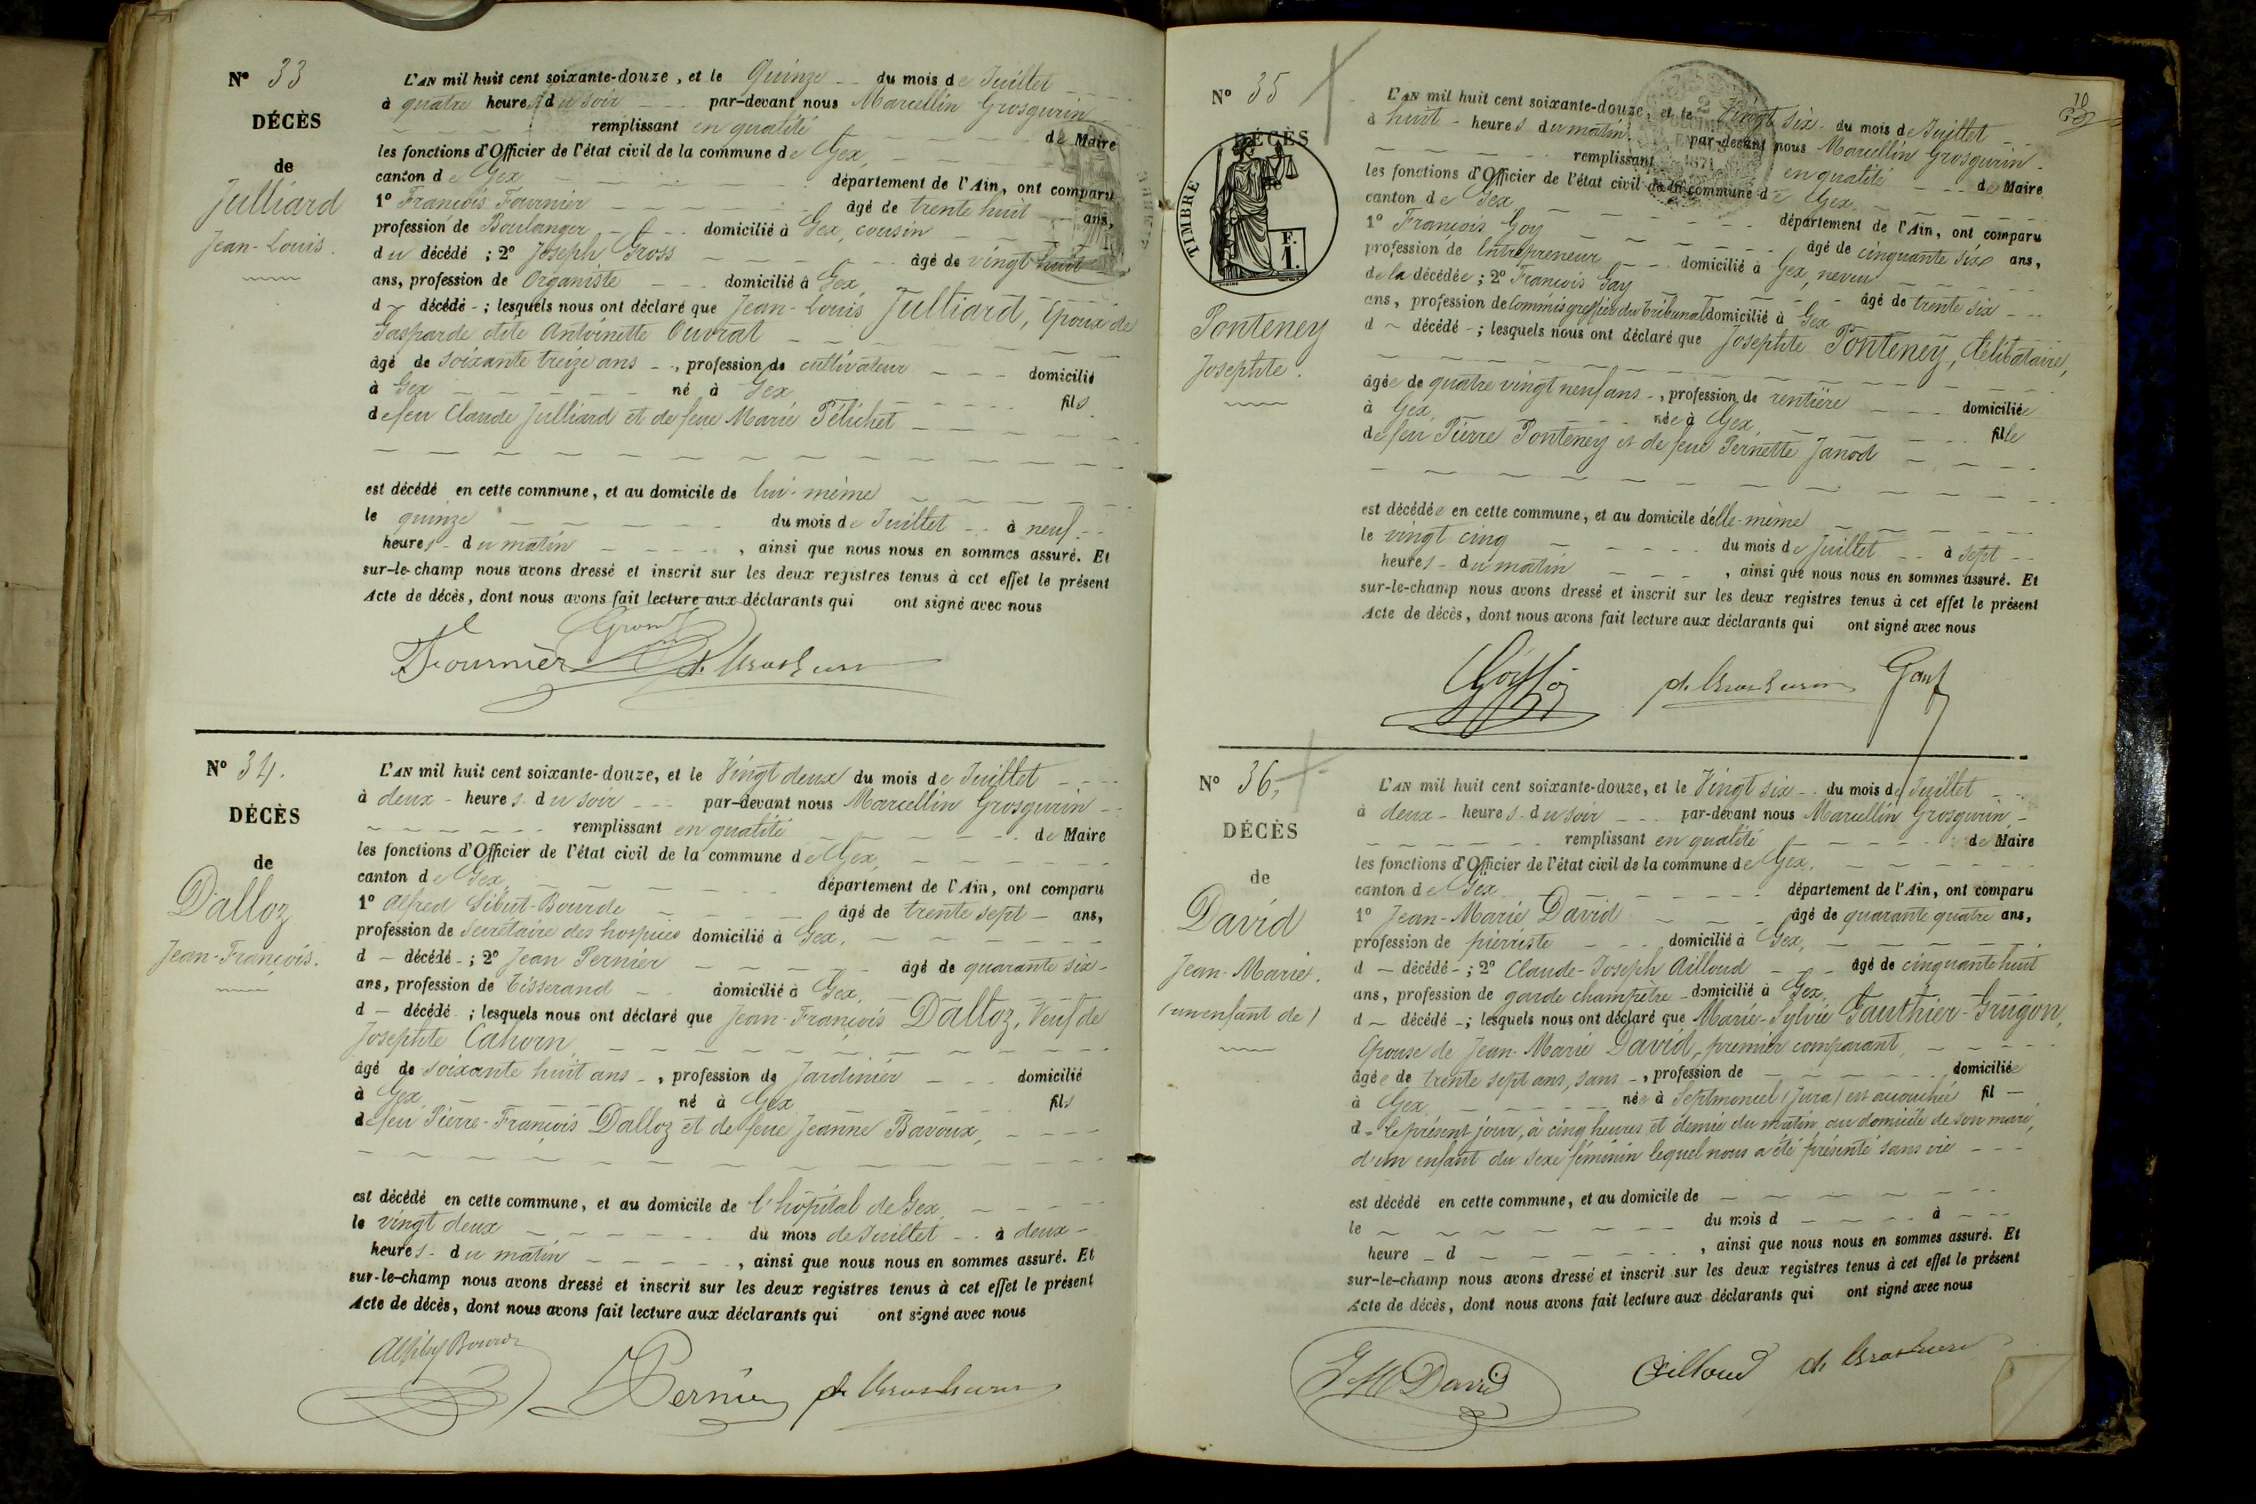 N° 33
DÉCÈS
de
Julliard
Jean-Louis.
L'AN mil huit cent soixante-douze, et le Quinze du mois de Juillet
à quatre heures du soir par-devant nous Marcellin Grosgurin
remplissant en qualité de Maire
les fonctions d'Officier de l'état civil de la commune de Gex,
canton de Gex département de l'Ain, ont comparu
1° François Fournier âgé de trente huit ans,
profession de Boulanger domicilié à Gex, cousin
du décédé ; 2° Joseph Gross âgé de vingt huit
ans, profession de Organiste domicilié à Gex
d décédé ; lesquels nous ont déclaré que Jean-Louis Julliard, Epoux de
Gasparde dite Antoinette Ouvrat
âgé de soixante treize ans, profession de cultivateur domicilié
à Gex né à Gex, fils
de feu Claude Julliard et de feue Marie Pélichet
est décédé en cette commune, et au domicile de lui-même
le quinze du mois de Juillet à neuf
heures du matin, ainsi que nous nous en sommes assuré. Et
sur-le-champ nous avons dressé et inscrit sur les deux registres tenus à cet effet le présent
Acte de décès, dont nous avons fait lecture aux déclarants qui ont signé avec nous
Fournier
N° 34.
DÉCÈS
de
Dalloz
Jean-François.
L'AN mil huit cent soixante-douze, et le Vingt deux du mois de Juillet
à deux heures du soir par-devant nous Marcellin Grosgurin
remplissant en qualité de Maire
les fonctions d'Officier de l'état civil de la commune de Gex,
canton de Gex département de l'Ain, ont comparu
1° Alfred Sibut-Bourde âgé de trente sept ans,
profession de Secrétaire des hospices domicilié à Gex,
d décédé ; 2° Jean Pernier âgé de quarante six
ans, profession de Tisserand domicilié à Gex,
d décédé ; lesquels nous ont déclaré que Jean-François Dalloz, Veuf de
Josephte Cahorn,
âgé de soixante huit ans, profession de Jardinier domicilié
à Gex né à Gex fils
de feu Pierre-François Dalloz et de feue Jeanne Bavoux,
est décédé en cette commune, et au domicile de l'hôpital de Gex,
le vingt deux du mois de Juillet à deux
heures du matin, ainsi que nous nous en sommes assuré. Et
sur-le-champ nous avons dressé et inscrit sur les deux registres tenus à cet effet le présent
Acte de décès, dont nous avons fait lecture aux déclarants qui ont signé avec nous
Pernier
10
N° 35
DÉCÈS
TIMBRE
F.
1.
Ponteney
Josephte.
L'AN mil huit cent soixante-douze, et le Vingt six du mois de Juillet
à huit heures du matin par-devant nous Marcellin Grosgurin
remplissant en qualité de Maire
les fonctions d'Officier de l'état civil de la commune de Gex
canton de Gex département de l'Ain, ont comparu
1° François Goy âgé de cinquante six ans,
profession de Entrepreneur domicilié à Gex, neveu
de la décédée ; 2° François Gay âgé de trente six
ans, profession de Commis greffier du Tribunal domicilié à Gex
d décédé ; lesquels nous ont déclaré que Josephte Ponteney, Célibataire,
âgée de quatre vingt neuf ans, profession de rentière domiciliée
à Gex, née à Gex, fille
de feu Pierre Ponteney et de feue Pernette Janod
est décédée en cette commune, et au domicile d'elle-même
le vingt cinq du mois de Juillet à sept
heures du matin, ainsi que nous nous en sommes assuré. Et
sur-le-champ nous avons dressé et inscrit sur les deux registres tenus à cet effet le présent
Acte de décès, dont nous avons fait lecture aux déclarants qui ont signé avec nous
N° 36.
DÉCÈS
de
David
Jean-Marie.
(un enfant de)
L'AN mil huit cent soixante-douze, et le Vingt six du mois de Juillet
à deux heures du soir par-devant nous Marcellin Grosgurin,
remplissant en qualité de Maire
les fonctions d'Officier de l'état civil de la commune de Gex,
canton de Gex département de l'Ain, ont comparu
1° Jean-Marie David âgé de quarante quatre ans,
profession de pierriste domicilié à Gex,
d décédé ; 2° Claude-Joseph Ailloud âgé de cinquante huit
ans, profession de garde champêtre domicilié à Gex,
d décédé ; lesquels nous ont déclaré que Marie-Sylvie Gauthier-Grugon,
Epouse de Jean-Marie David, premier comparant,
âgée de trente sept ans, sans, profession de domiciliée
à Gex, née à Septmoncel (Jura) est accouchée fil
d le présent jour, à cinq heures et demie du matin, au domicile de son mari,
d'un enfant du sexe féminin lequel nous a été présenté sans vie
est décédé en cette commune, et au domicile de
le du mois d à
heure d , ainsi que nous nous en sommes assuré. Et
sur-le-champ nous avons dressé et inscrit sur les deux registres tenus à cet effet le présent
Acte de décès, dont nous avons fait lecture aux déclarants qui ont signé avec nous
J M David Ailloud